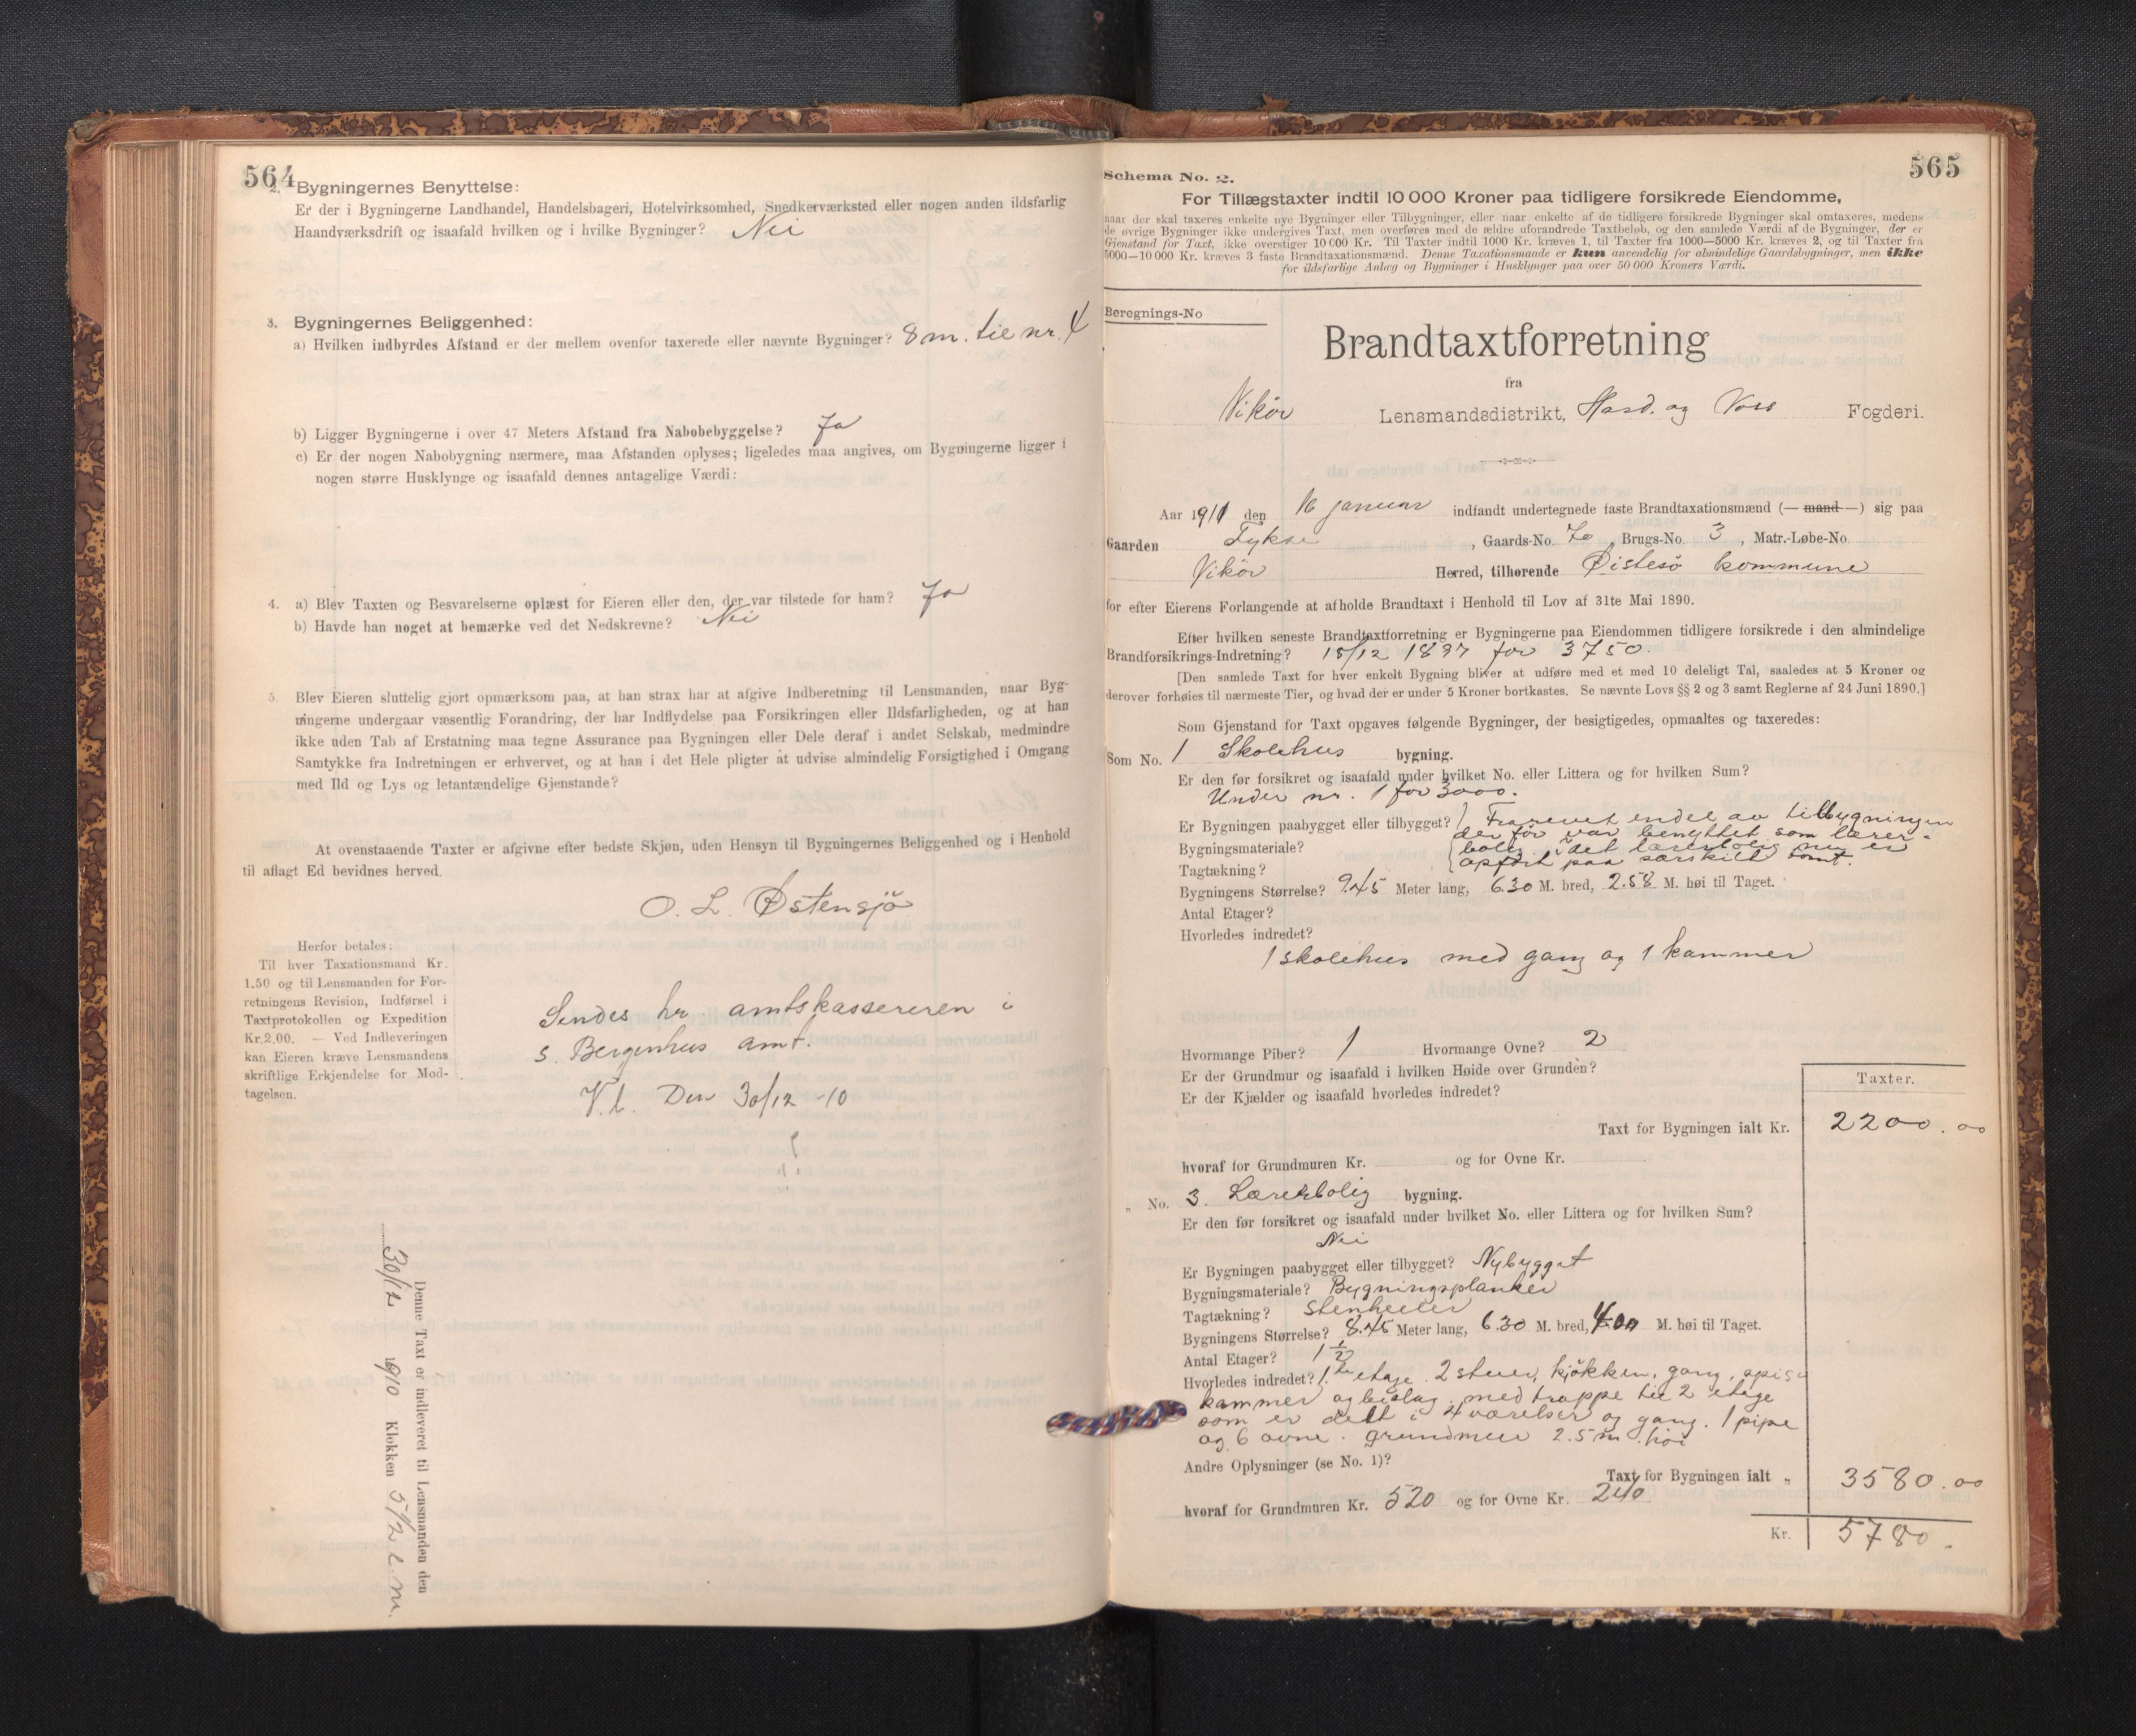 564
2. Bygningernes Benyttelse:
Er der i Bygningerne Landhandel, Handelsbageri, Hotelvirksomhed, Snedkerværksted eller nogen anden ildsfarlig
Haandværksdrift og isaafald hvilken og i hvilke Bygninger? Nei
3. Bygningernes Beliggenhed:
a) Hvilken indbyrdes Afstand er der mellem ovenfor taxerede eller nævnte Bygninger? 8 m. til nr. 4
b) Ligger Bygningerne i over 47 Meters Afstand fra Nabobebyggelse? Ja
c) Er der nogen Nabobygning nærmere, maa Afstanden oplyses; ligeledes maa angives, om Bygningerne ligger i
nogen større Husklynge og isaafald dennes antagelige Værdi:
4. a) Blev Taxten og Besvarelserne oplæst for Eieren eller den, der var tilstede for ham? Ja
b) Havde han noget at bemærke ved det Nedskrevne? Nei
5. Blev Eieren sluttelig gjort opmærksom paa, at han strax har at afgive Indberetning til Lensmanden, naar Byg-
ningerne undergaar væsentlig Forandring, der har Indflydelse paa Forsikringen eller Ildsfarligheden, og at han
ikke uden Tab af Erstatning maa tegne Assurance paa Bygningen eller Dele deraf i andet Selskab, medmindre
Samtykke fra Indretningen er erhvervet, og at han i det Hele pligter at udvise almindelig Forsigtighed i Omgang
med Ild og Lys og letantændelige Gjenstande?
At ovenstaaende Taxter er afgivne efter bedste Skjøn, uden Hensyn til Bygningernes Beliggenhed og i Henhold
til aflagt Ed bevidnes herved.
O. L. Østensjö
Herfor betales:
Til hver Taxationsmand Kr.
1.50 og til Lensmanden for For-
retningens Revision, Indførsel i
Taxtprotokollen og Expedition
Kr. 2.00. — Ved Indleveringen
kan Eieren kræve Lensmandens
skriftlige Erkjendelse for Mod-
tagelsen.
Sendes hr amtskassereren i
S. Bergenhus amt.
V.l. Den 30/12 -10
Denne Taxt er indleveret til Lensmanden den
30/12 1910 Klokken 5 1/2 e.m.
565
Schema No. 2.
For Tillægstaxter indtil 10 000 Kroner paa tidligere forsikrede Eiendomme,
naar der skal taxeres enkelte nye Bygninger eller Tilbygninger, eller naar enkelte af de tidligere forsikrede Bygninger skal omtaxeres, medens
de øvrige Bygninger ikke undergives Taxt, men overføres med de ældre uforandrede Taxtbeløb, og den samlede Værdi af de Bygninger, der er
Gjenstand for Taxt, ikke overstiger 10 000 Kr. Til Taxter indtil 1000 Kr. kræves 1, til Taxter fra 1000—5000 Kr. kræves 2, og til Taxter fra
5000—10 000 Kr. kræves 3 faste Brandtaxationsmænd. Denne Taxationsmaade er kun anvendelig for almindelige Gaardsbygninger, men ikke
for ildsfarlige Anlæg og Bygninger i Husklynger paa over 50 000 Kroners Værdi.
Beregnings-No
Brandtaxtforretning
fra
Vikör Lensmandsdistrikt, Hard. og Voss Fogderi.
Aar 1911 den 16 januar indfandt undertegnede faste Brandtaxationsmænd (— mand —) sig paa
Gaarden Fykse, Gaards-No. 70, Brugs-No. 3, Matr.-Løbe-No.
Vikör Herred, tilhørende Øistesö kommune
for efter Eierens Forlangende at afholde Brandtaxt i Henhold til Lov af 31te Mai 1890.
Efter hvilken seneste Brandtaxtforretning er Bygningerne paa Eiendommen tidligere forsikrede i den almindelige
Brandforsikrings-Indretning? 15/12 1897 for 3750.
[Den samlede Taxt for hver enkelt Bygning bliver at udføre med et med 10 deleligt Tal, saaledes at 5 Kroner og
derover forhøies til nærmeste Tier, og hvad der er under 5 Kroner bortkastes. Se nævnte Lovs §§ 2 og 3 samt Reglerne af 24 Juni 1890.]
Som Gjenstand for Taxt opgaves følgende Bygninger, der besigtigedes, opmaaltes og taxeredes:
Som No. 1 Skolehus bygning.
Er den før forsikret og isaafald under hvilket No. eller Littera og for hvilken Sum?
Under nr. 1 for 3000.
Er Bygningen paabygget eller tilbygget? endel av tilbygningen
der før var benyttet som lærer-
Bygningsmateriale? bolig, idet lærerbolig nu er
Tagtækning? opført paa særskilt tomt.
Bygningens Størrelse? 9.45 Meter lang, 6.30 M. bred, 2.58 M. høi til Taget.
Antal Etager?
Hvorledes indredet?
1 skolehus med gang og 1 kammer
Hvormange Piber? 1 Hvormange Ovne? 2
Er der Grundmur og isaafald i hvilken Høide over Grunden?
Er der Kjælder og isaafald hvorledes indredet?
Taxter.
Taxt for Bygningen ialt Kr. 2200.00
hvoraf for Grundmuren Kr. og for Ovne Kr.
„ No. 3. Lærerbolig bygning.
Er den før forsikret og isaafald under hvilket No. eller Littera og for hvilken Sum?
Nei
Er Bygningen paabygget eller tilbygget? Nybygget
Bygningsmateriale? Bygningsplanker
Tagtækning? Stenheller
Bygningens Størrelse? 8.45 Meter lang, 6.30 M. bred, 4.00 M. høi til Taget.
Antal Etager? 1 1/2
Hvorledes indredet? 1ste etage 2 stuer, kjökken, gang, spise
kammer og bislag, med trappe til 2 etage
som er delt i 4 værelser og gang. 1 pipe
og 6 ovne. grundmur 2.5 m høi
Andre Oplysninger (se No. 1)?
Taxt for Bygningen ialt „ 3580.00
hvoraf for Grundmuren Kr. 520 og for Ovne Kr. 240
Kr. 5780.